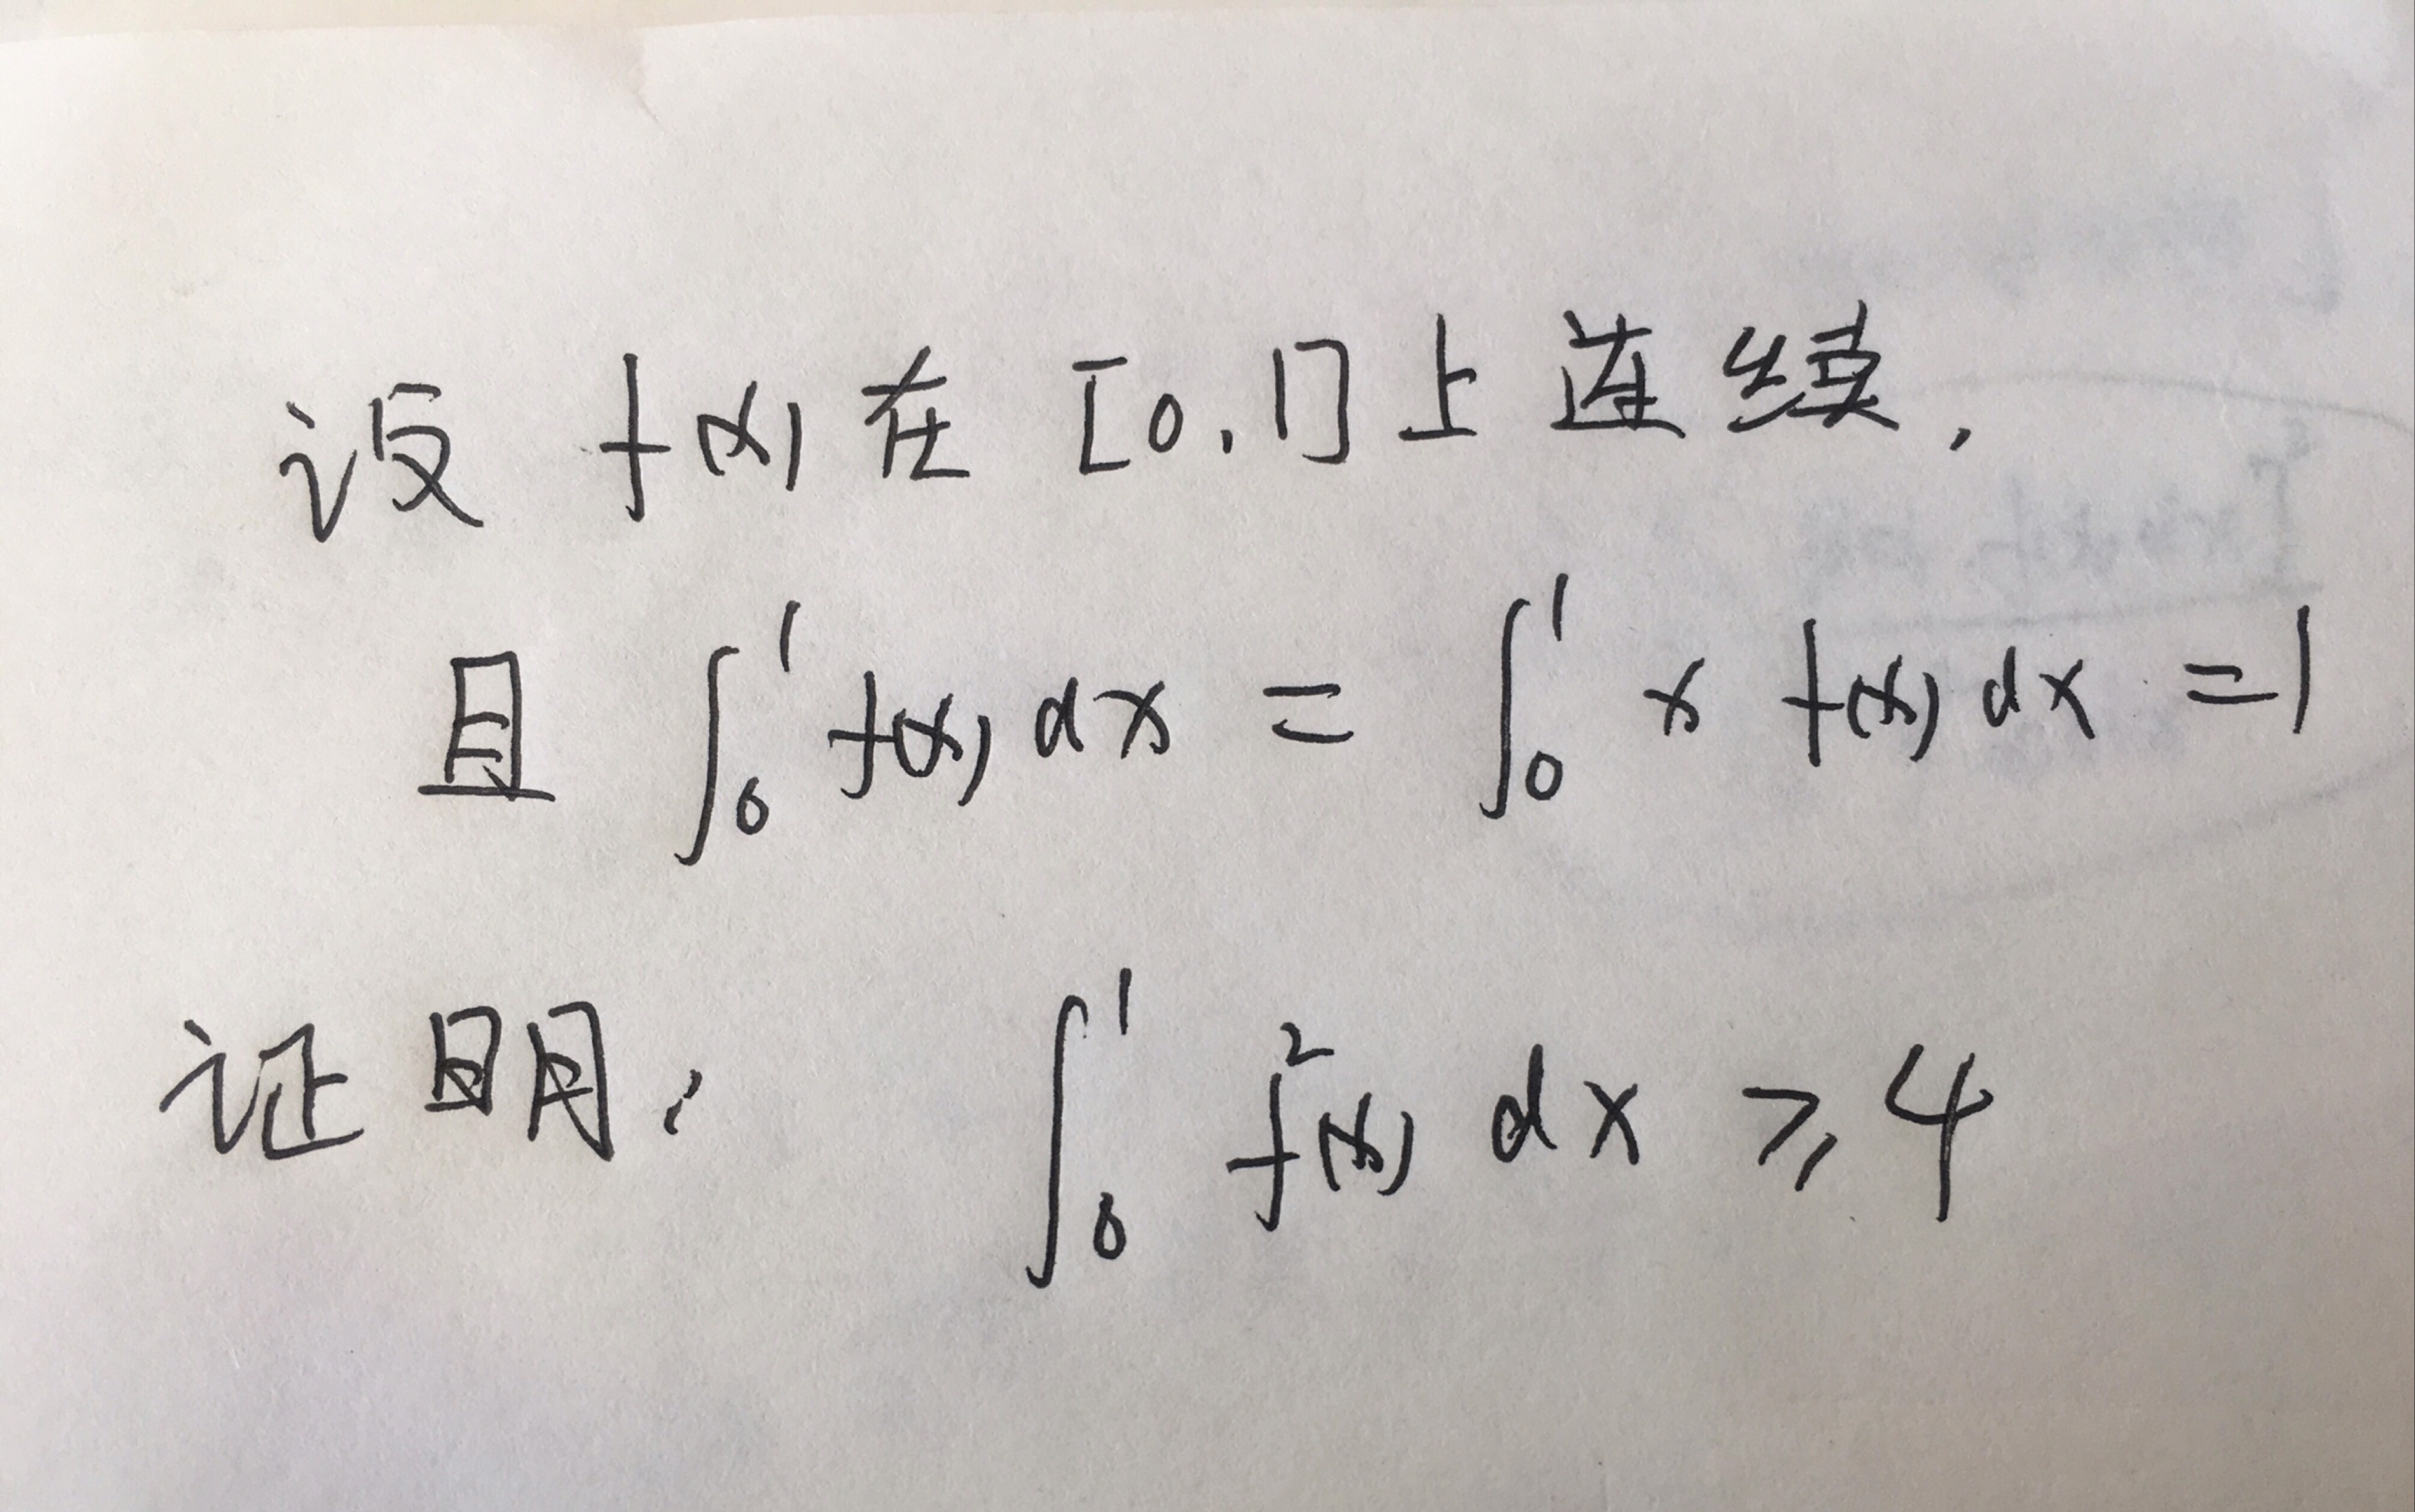 设 f(x) 在 [0,1] 上连续,
且 ∫₀¹ f(x) dx = ∫₀¹ x f(x) dx = 1
证明: ∫₀¹ f²(x) dx ≥ 4